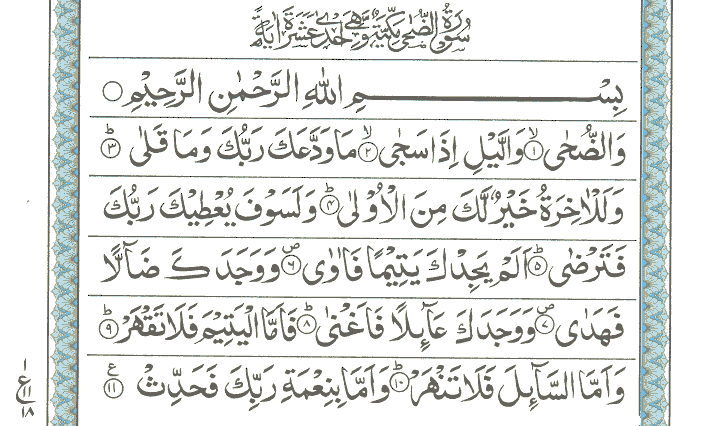 سُوْرَةُ الضُّحٰى مَكِّيَّةٌ وَّهِيَ اِحْدٰى عَشَرَةَ اٰيَةً
بِسْمِ اللّٰهِ الرَّحْمٰنِ الرَّحِيْمِ
وَالضُّحٰى ۙ﴿۱﴾ وَالَّيْلِ اِذَا سَجٰى ۙ﴿۲﴾ مَا وَدَّعَكَ رَبُّكَ وَمَا قَلٰى ؕ﴿۳﴾
وَلَلْاٰخِرَةُ خَيْرٌ لَّكَ مِنَ الْاُوْلٰى ؕ﴿۴﴾ وَلَسَوْفَ يُعْطِيْكَ رَبُّكَ
فَتَرْضٰى ؕ﴿۵﴾ اَلَمْ يَجِدْكَ يَتِيْمًا فَاٰوٰى ۪﴿۶﴾ وَوَجَدَكَ ضَآلًّا
فَهَدٰى ۪﴿۷﴾ وَوَجَدَكَ عَآئِلًا فَاَغْنٰى ؕ﴿۸﴾ فَاَمَّا الْيَتِيْمَ فَلَا تَقْهَرْ ؕ﴿۹﴾
وَاَمَّا السَّآئِلَ فَلَا تَنْهَرْ ؕ﴿۱۰﴾ وَاَمَّا بِنِعْمَةِ رَبِّكَ فَحَدِّثْ ﴿۱۱﴾ ع
۱
ع ۱۱
۱۸